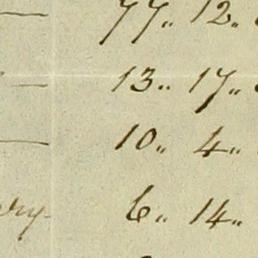 — 77.. 12..
— 13.. 17..
— 10.. 4..
ry- 6.. 14..